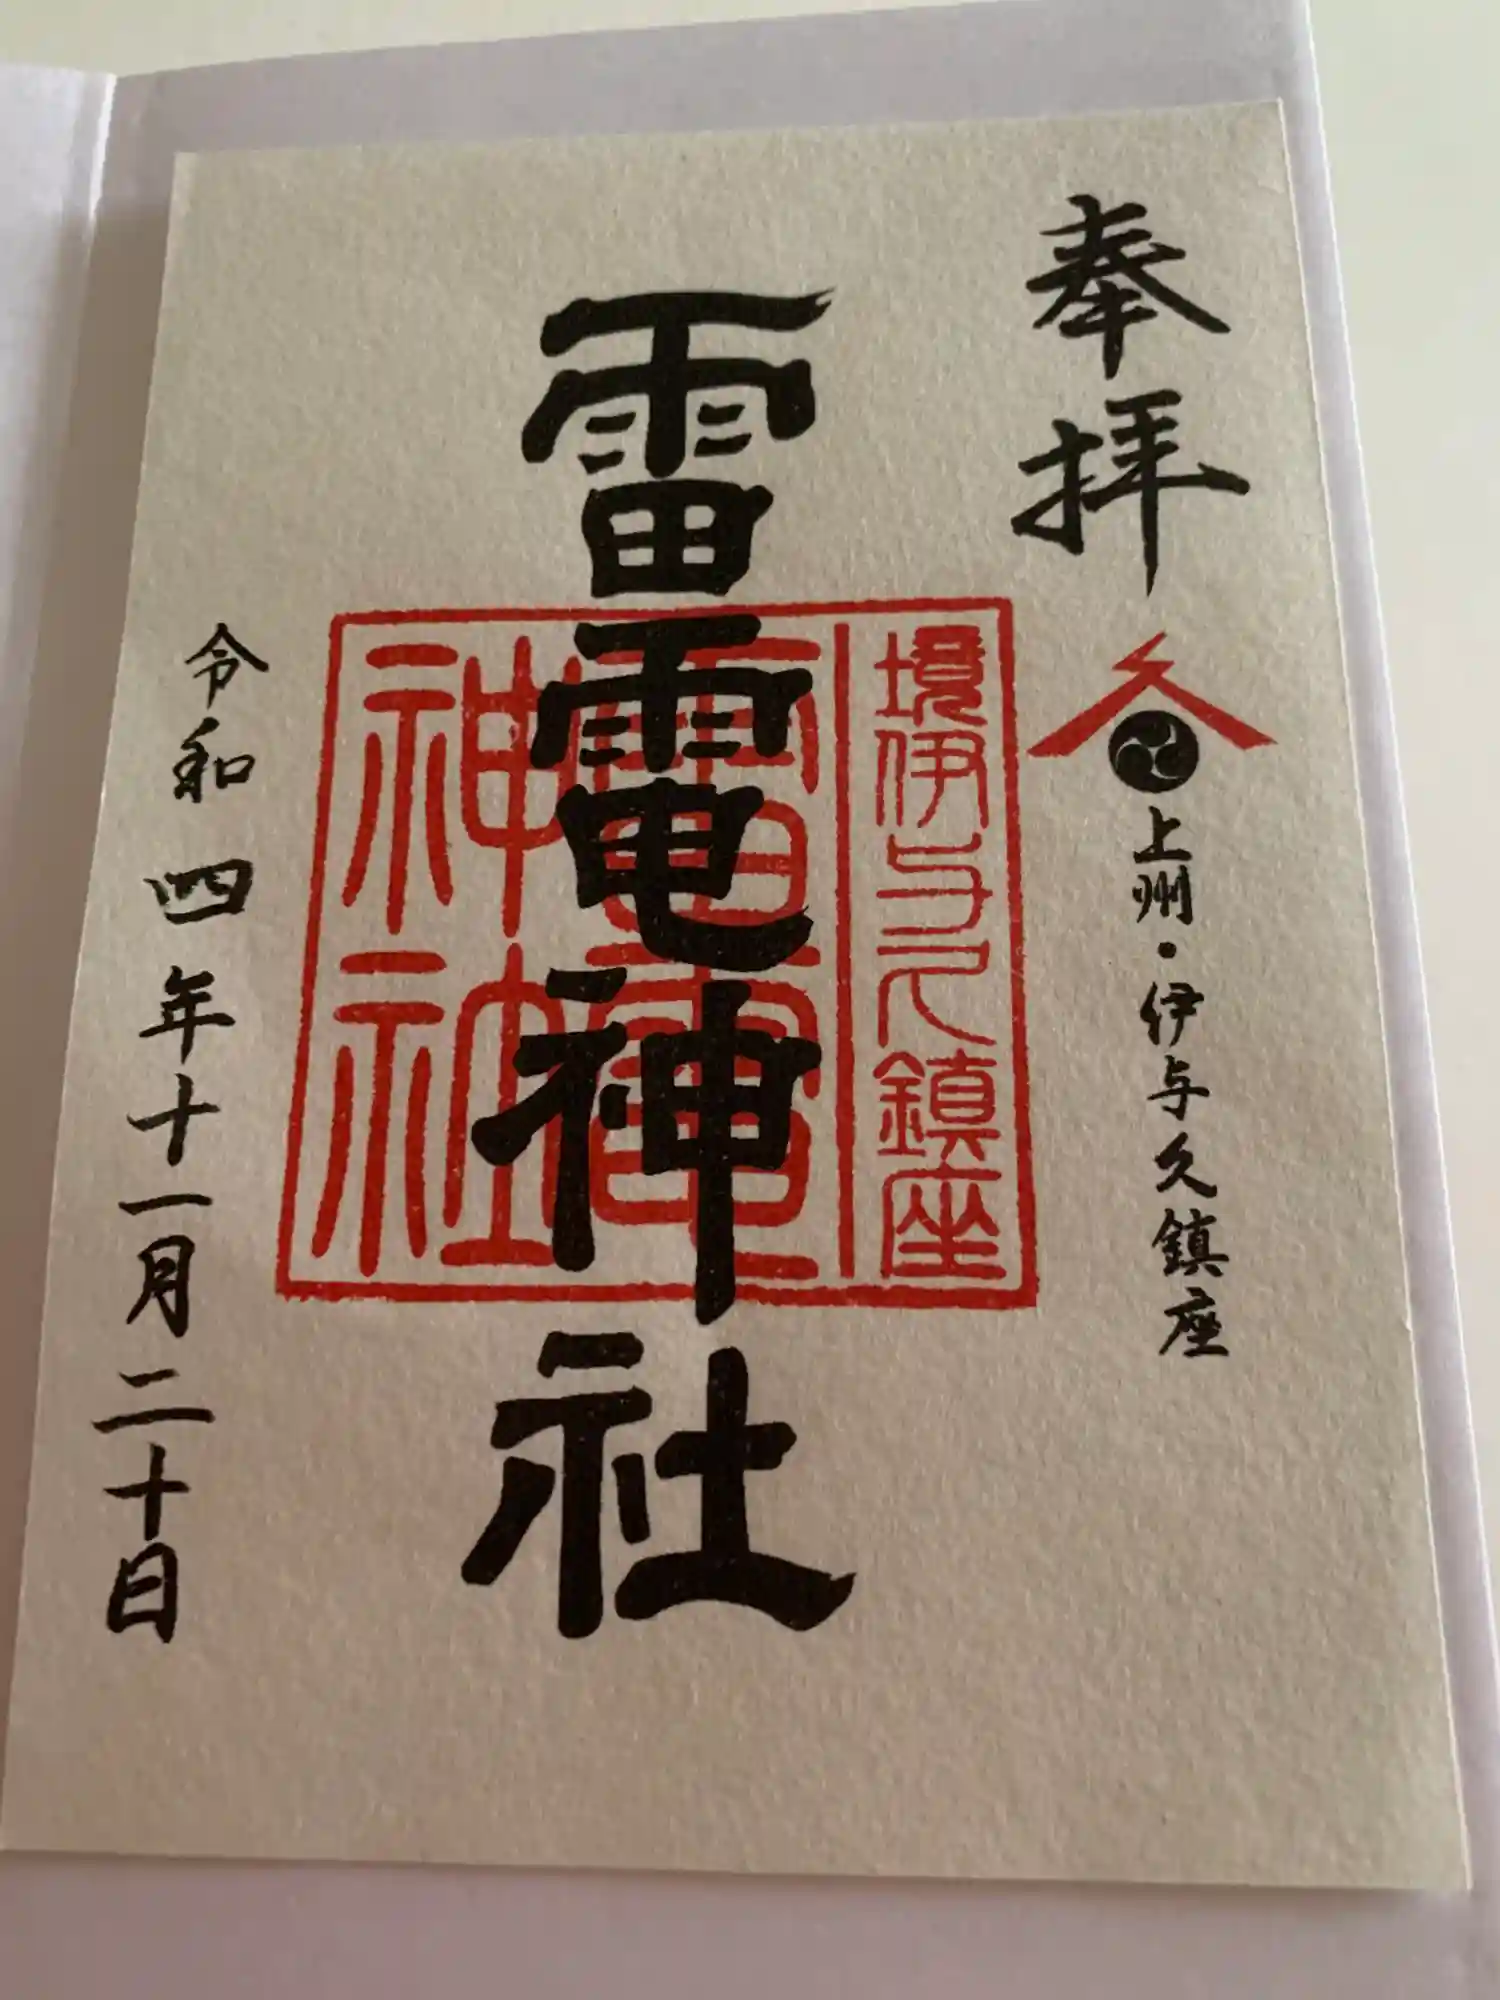 奉拝
上州・伊与久鎮座
境伊与久鎮座
雷電神社
雷電神社
令和四年十一月二十日